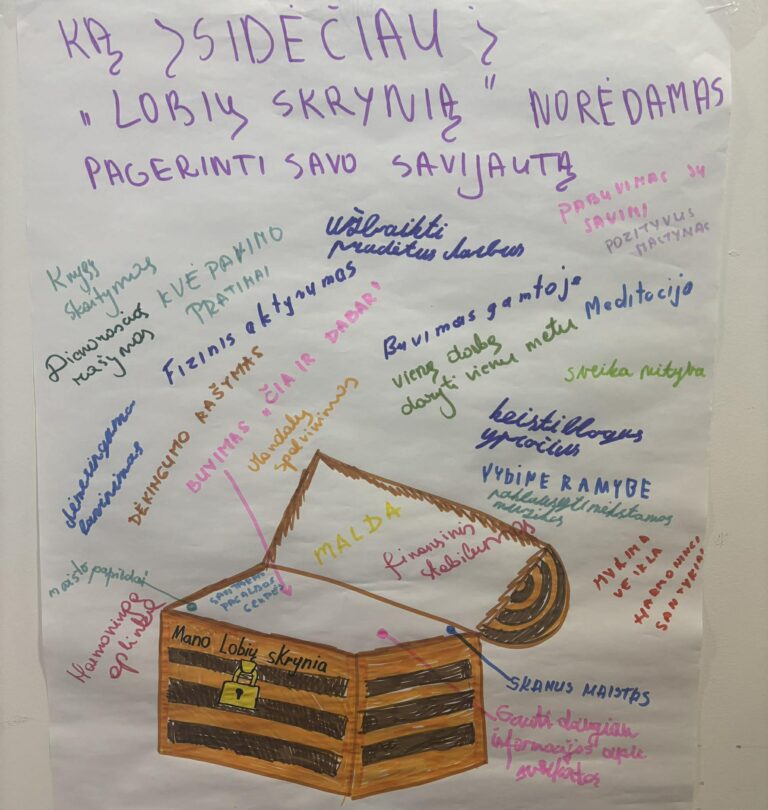 KĄ ĮSIDĖČIAU Į
„LOBIŲ SKRYNIĄ" NORĖDAMAS
PAGERINTI SAVO SAVIJAUTĄ
PABUVIMAS SU
SAVIMI
POZITYVUS
MĄSTYMAS
Užbaikti
pradėtus darbus
Knygų
skaitymas
KVĖPAVIMO
PRATIMAI
Dienoraščio
rašymas
Fizinis aktyvumas
Buvimas gamtoje
Meditacija
vieną darbą
daryti vienu metu
sveika mityba
BUVIMAS „ČIA IR DABAR"
DĖKINGUMO RAŠYMAS
Mandalų
spalvinimas
dėmesingumo
lavinimas
keisti blogus
įpročius
VYDINĖ RAMYBĖ
muzikos
MALDA
finansinis
stabilumas
MYLIMA
VEIKLA
HARMONINGI
SANTYKIAI
maisto papildai
PAGALBOS
Harmoninga
aplinka
Mano Lobių skrynia
SKANUS MAISTAS
Gauti daugiau
informacijos apie